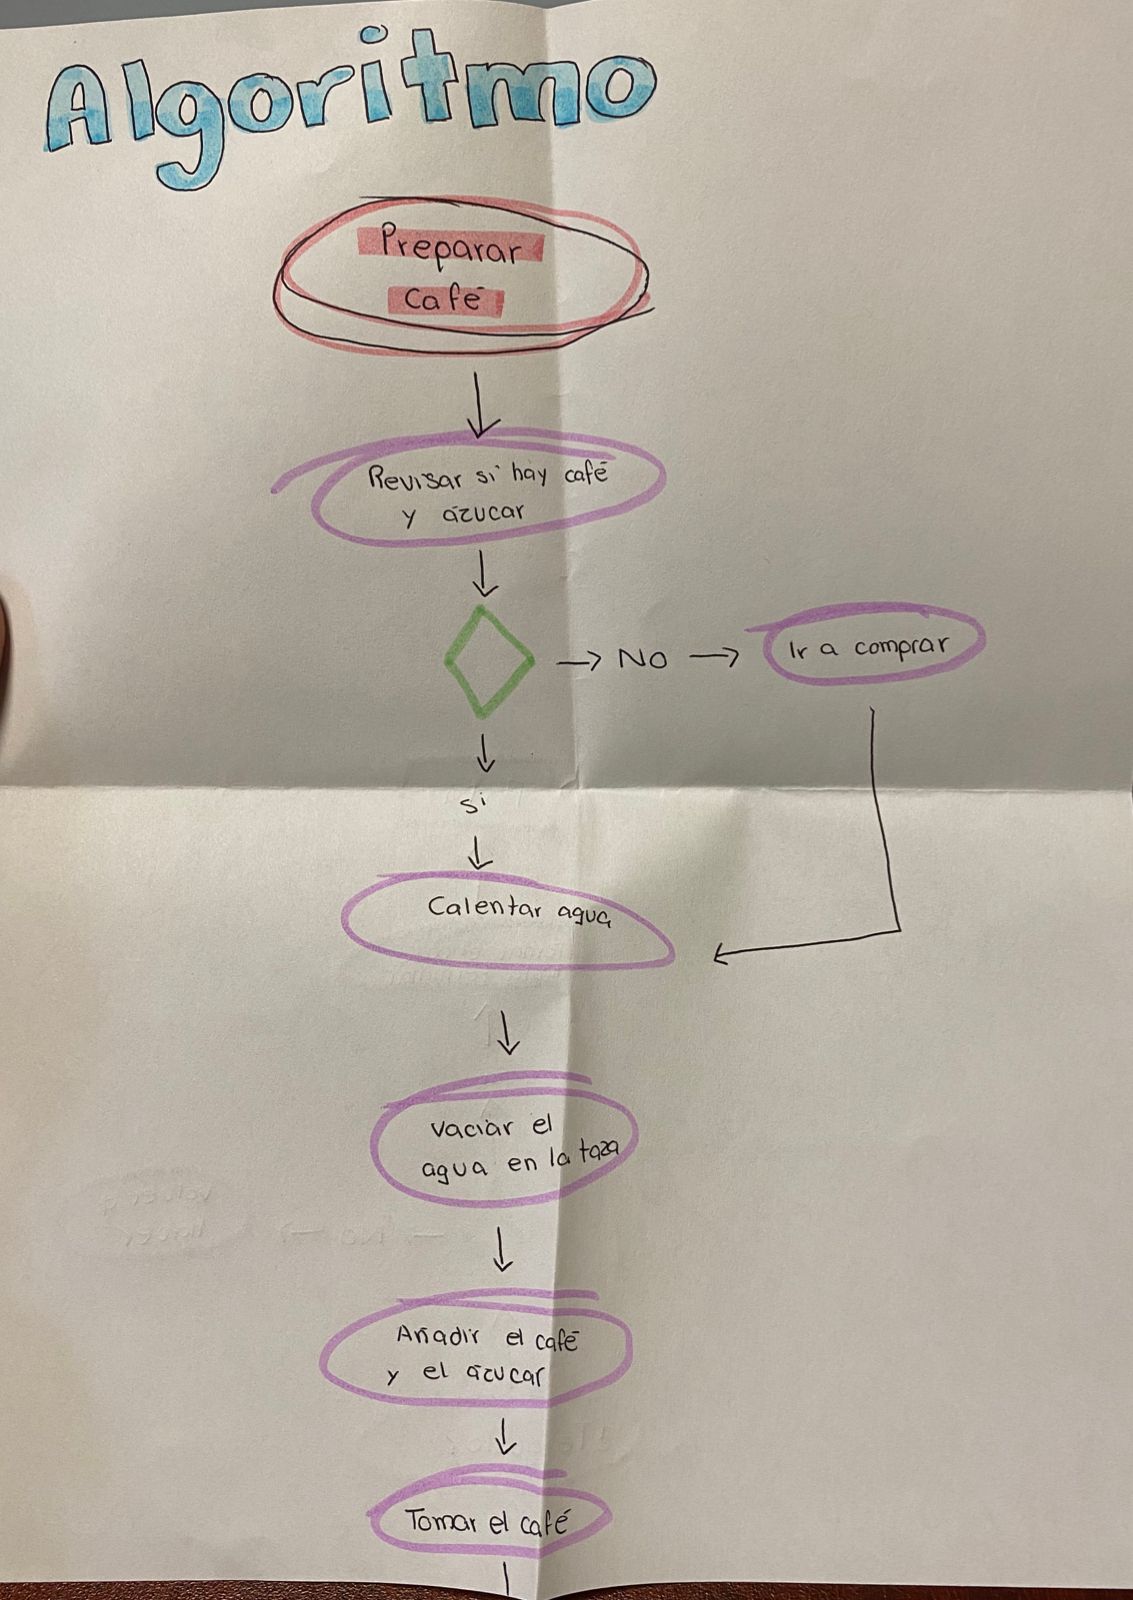 Algoritmo
Preparar
Café
Revisar si hay café
y azucar
NO
Ir a comprar
si
Calentar agua
Vaciar el
agua en la taza
Añadir el café
y el azucar
Tomar el café